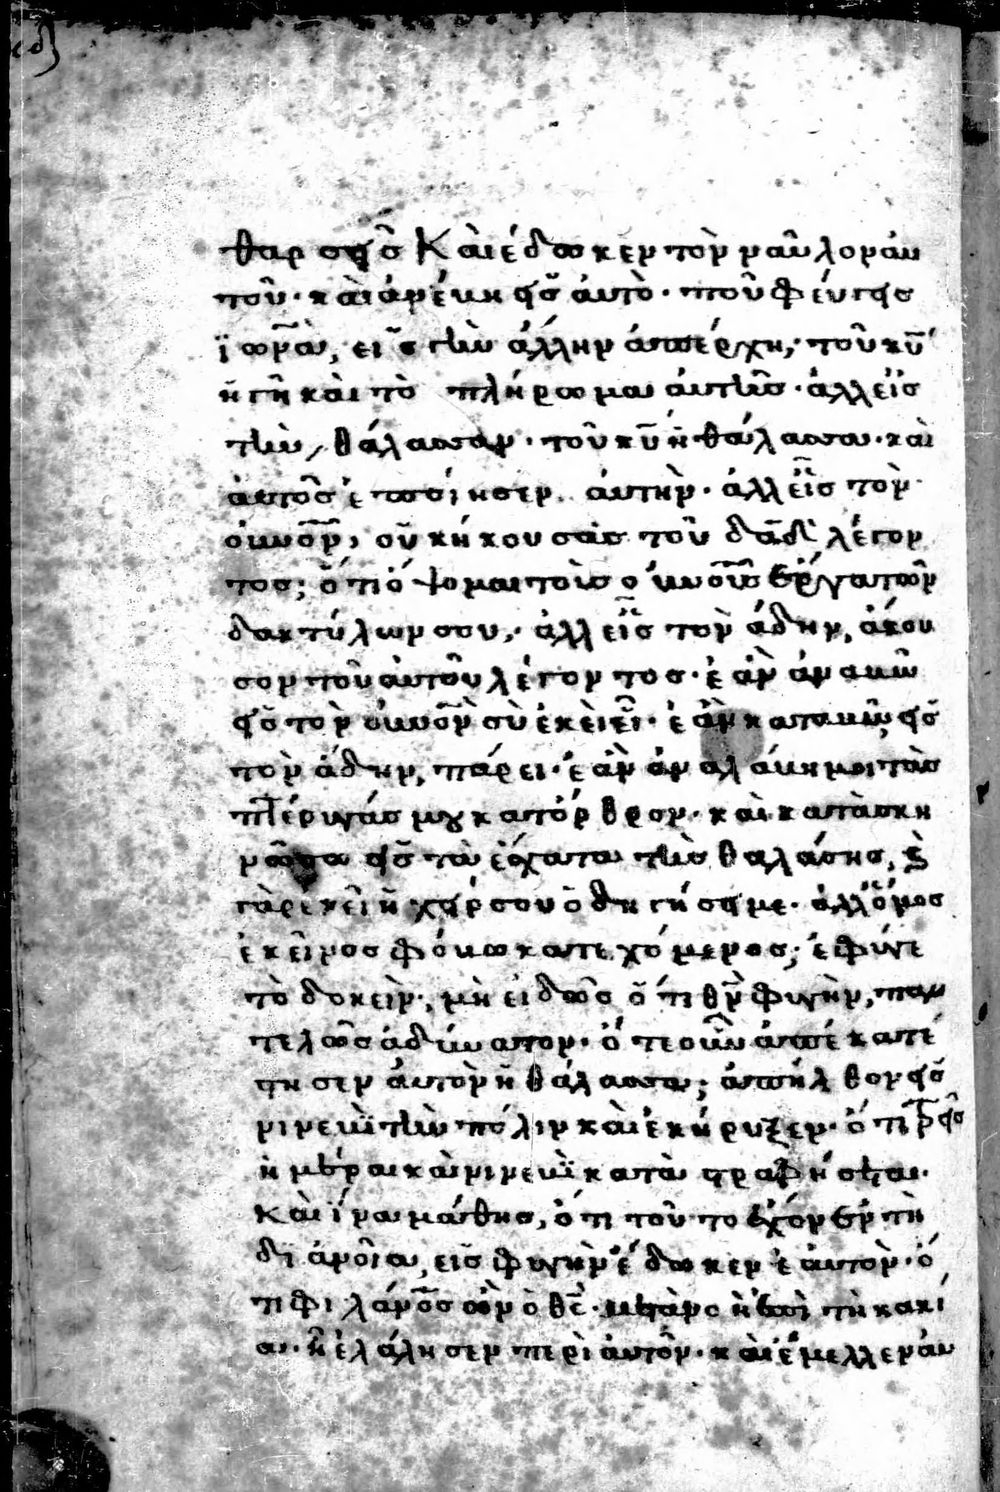 θαρσεῖς Καὶ ἔδωκεν τὸν ναῦλον ἀυ
τοῦ· καὶ ἀνέβη εἰς ἀυτὸ· ποῦ φέυγεις
ϊωνᾶ, εἰς τὴν ἄλλην ἀπέρχη· τοῦ κυ
ἡ γῆ καὶ τὸ πλήρωμα ἀυτῆς· ἀλλ εἰς
τὴν θάλασσαν· τοῦ κυ ἡ θάλασσα· καὶ
ἀυτὸς ἐποίησεν ἀυτὴν· ἀλλ εἰς τὸν
ουνον, οὐκ ἤκουσας τοῦ δαδ λέγον
τος; ὅτι ὄψομαι τοὺς ουνους ἔργα τῶν
δακτύλων σου,· ἀλλ εἰς τὸν ἅδην, ἄκου
σον τοῦ ἀυτοῦ λέγοντος· ἐὰν ἀναβῶ
εἰς τὸν ουνον σὺ ἐκεῖ εἶ· ἐὰν καταβῶ εἰς
τὸν ἅδην, πάρει· ἐὰν ἀναλάβημι τὰς
πτέρυγάς μου κατ ὄρθρον· καὶ κατασκη
νώσω εἰς τὰ ἔσχατα τῆς θαλάσης, καὶ
γὰρ ἐκεῖ ἡ χείρ σου ὁδηγήσει με· ἀλλ ὅμως
ἐκεῖνος φόβω κατεχόμενος, ἔφυγε
τὸ δοκεῖν, μὴ εἰδὼς ὅτι θν φυγεῖν, παν
τελῶς ἀδύνατον· ὅτε οὖν ἀπεκατέ
στησεν ἀυτὸν ἡ θάλασσα, ἀπῆλθον εἰς
νινευῒ τὴν πόλιν καὶ ἐκήρυξεν· ὅτι τρεῖς
ἡμέραι καὶ νινευῒ καταστραφήσεται·
Καὶ ἵνα μάθης, ὅτι τοῦτο ἔχων ἐν τῆ
διανοία, εἰς φυγὴν ἔδωκεν ἑαυτὸν· ὅ
τι φιλανος ὢν ὁ θς· μετανοήσει τῆ κακί
α· ἧ ἐλάλησεν περὶ ἀυτῶν· καὶ ἔμελλεν ἀυ